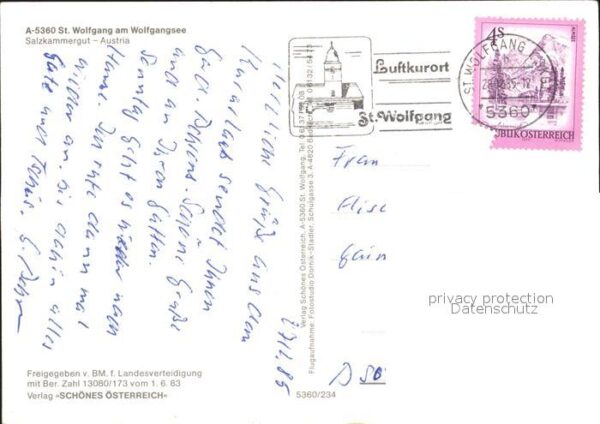 A-5360 St. Wolfgang am Wolfgangsee
Salzkammergut – Austria
27.12.85
Herzliche Grüße aus dem
Kurzurlaub sendet Ihnen
Schöne Grüße
auch an Ihren Gatten.
Sonntag geht es wieder nach
Hause. Ich rufe dann mal
wieder an. Bis dahin alles
Gute und Tschüs.
Freigegeben v. BM. f. Landesverteidigung
mit Ber. Zahl 13080/173 vom 1. 6. 83
Verlag »SCHÖNES ÖSTERREICH«
5360/234
Verlag Schönes Österreich, A-5360 St. Wolfgang, Tel.
Flugaufnahme: Fotostudio Dornik-Stadler, Schulgasse 3, A-4820 Bad
Luftkurort
St. Wolfgang
ST. WOLFGANG
5360
4S
REPUBLIK ÖSTERREICH
Frau
D 50
privacy protection
Datenschutz